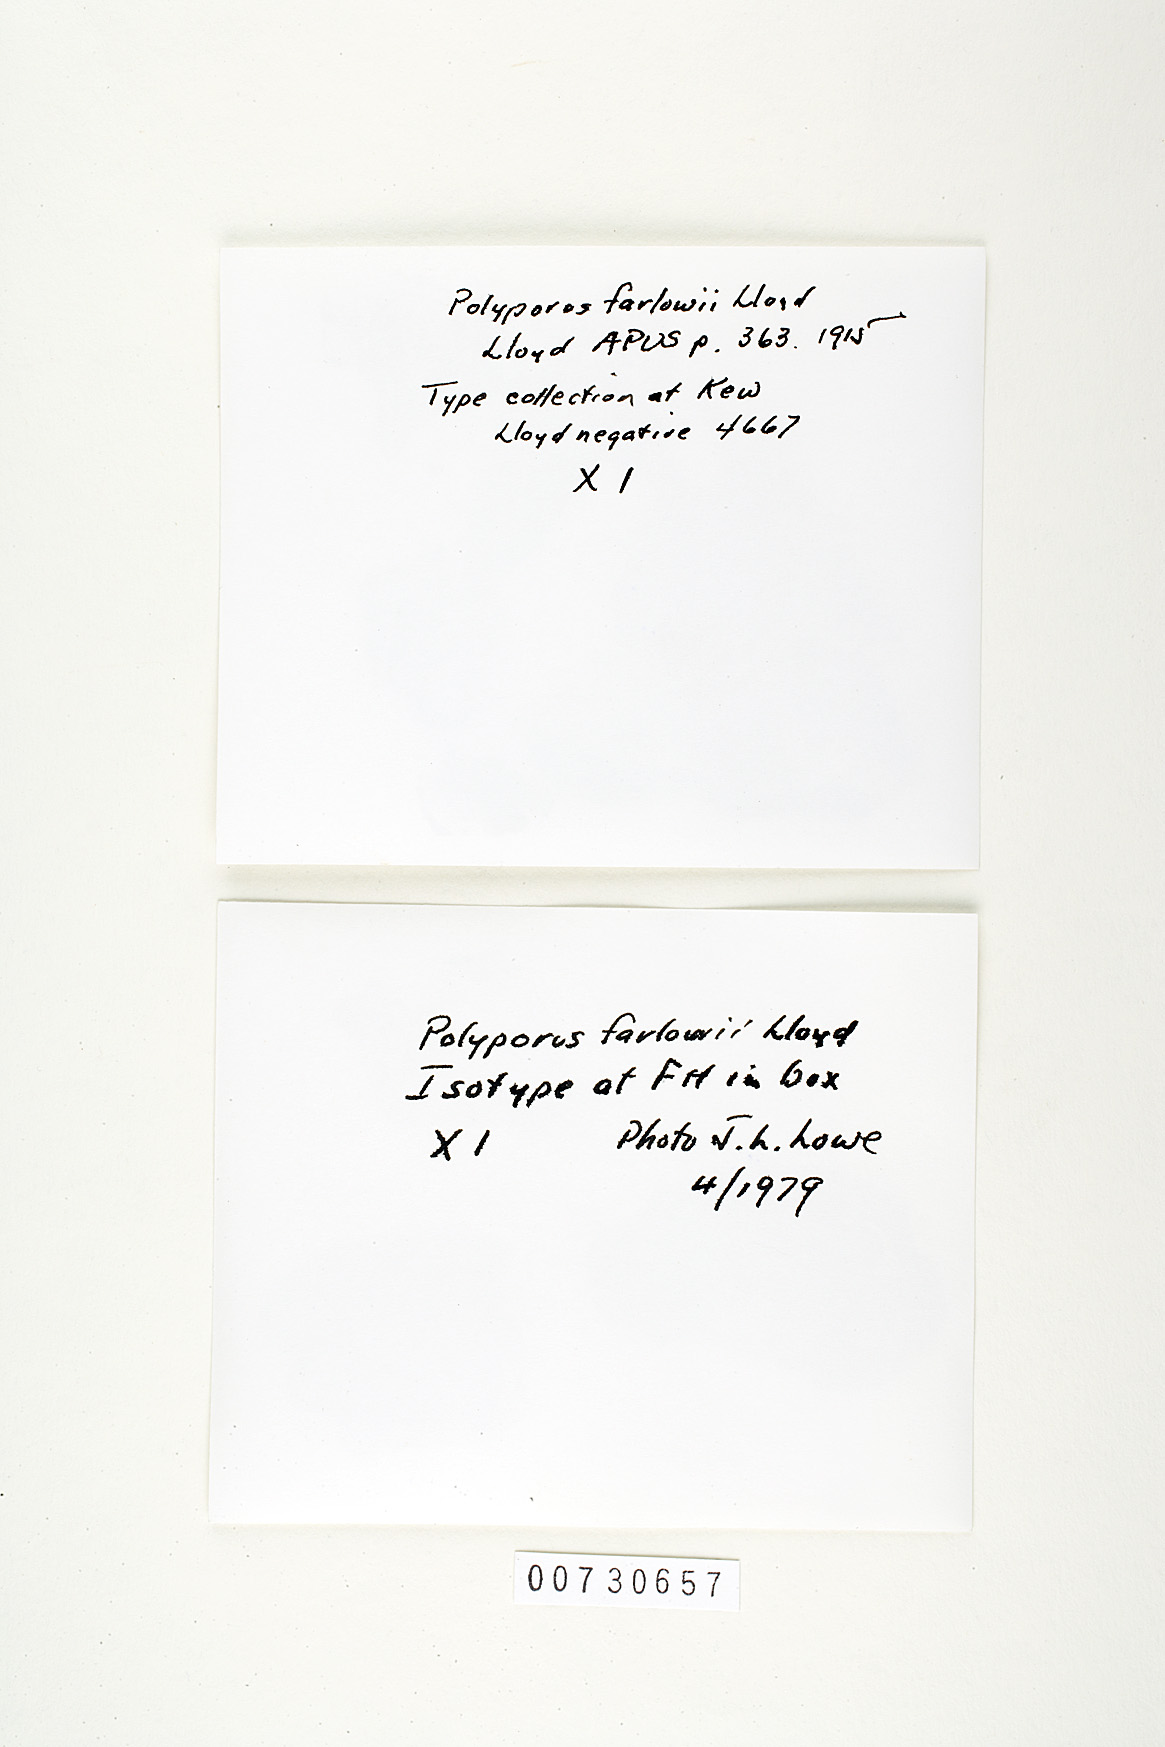 Polyporus farlowii Lloyd
Lloyd APUS p. 363. 1915
Type collection at Kew
Lloyd negative 4667
X 1
Polyporus farlowii Lloyd
Isotype at FH in box
X 1 Photo J. L. Lowe
4/1979
00730657